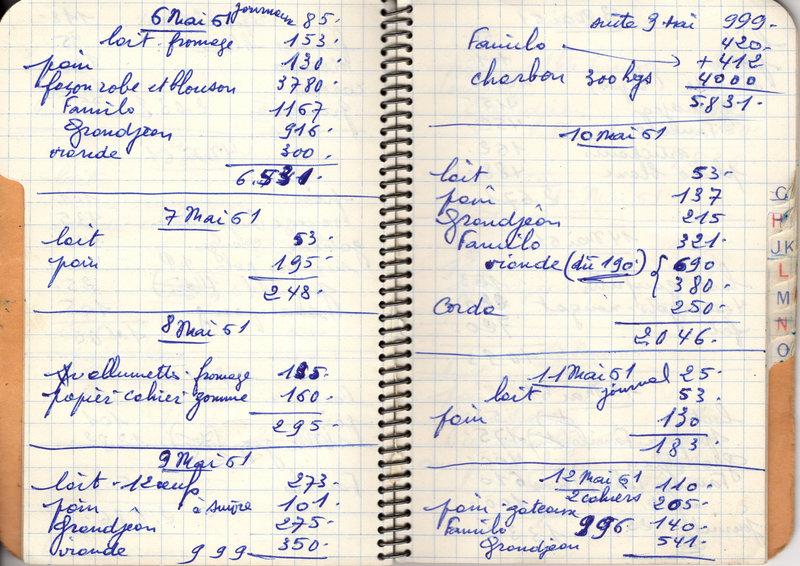 6 Mai 51 journaux 85.
lait. fromage 153.
pain 130.
façon robe et blouson 3780.
Familo 1167
Grandjean 916.
viande 300.
6.531.
7 Mai 51
lait 53.
pain 195.
248.
8 Mai 51
allumettes. fromage 135.
papier. cahier. gomme 160.
295.
9 Mai 51
lait - 12 œufs 273.
pain à suivre 101.
Grandjean 275.
viande 999 350.
suite 9 mai 999.
Familo 420.
+ 412
charbon 300 kgs 4000
5.831.
10 Mai 51
lait 53.
pain 137
Grandjean 215
Familo 321.
viande (dû 190.) { 690
380.
Corda 250.
2046.
11 Mai 51 journal 25.
lait 53.
pain 130
183.
12 Mai 51 110.
2 cahiers
pain. gâteaux 205.
Familo 996. 140.
Grandjean 541.
G
H
JK
L
M
N
O